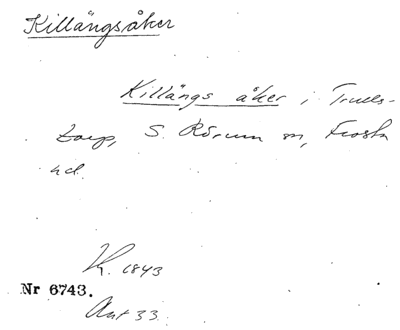 Killängsåker
Killängs åker i Truls-
torp, S. Rörum sn, Frosta
hd.
K. 1843
Nr 6743.
Ant 33.